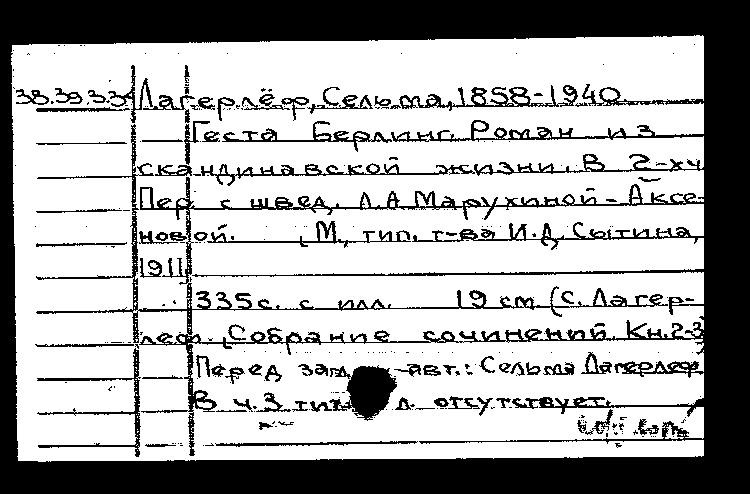 38.39.3.34 Лагерлёф, Сельма, 1858-1940
Геста Берлинг. Роман из
скандинавской жизни. В 2-х ч.
Пер. с швед. Л.А. Марухиной-Аксе-
новой. [М., тип. т-ва И.Д. Сытина,
1911]
335 с. с илл. 19 см (С. Лагер-
леф. [Собрание сочинений. Кн. 2-3
Перед загл. авт.: Сельма Лагерлеф
В ч. 3 тит. л. отсутствует.